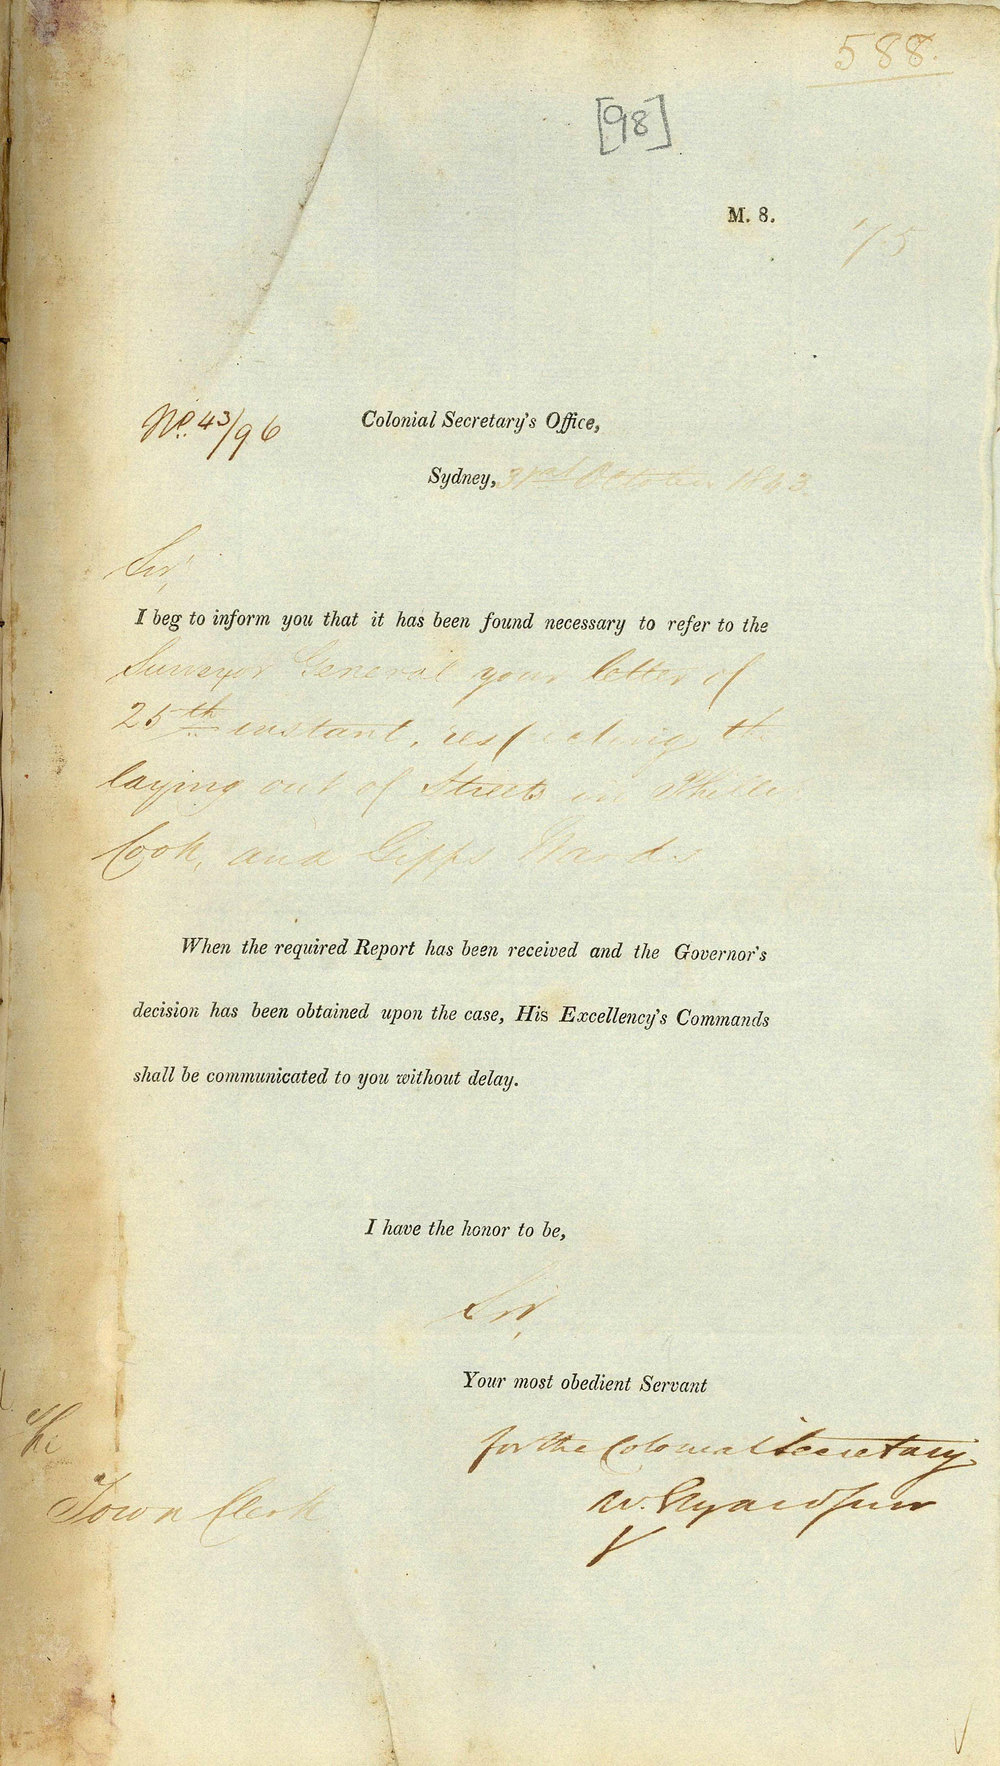 588.
[98]
M. 8.
175
No. 43/96
Colonial Secretary's Office,
Sydney, 31st October 1843
Sir,
I beg to inform you that it has been found necessary to refer to the
Surveyor General your letter of
25th instant, respecting the
laying out of Streets in Phillip
Cook, and Gipps Wards
When the required Report has been received and the Governor's
decision has been obtained upon the case, His Excellency's Commands
shall be communicated to you without delay.
I have the honor to be,
Sir,
Your most obedient Servant
for the Colonial Secretary
W. Elyard Junr
The
Town Clerk